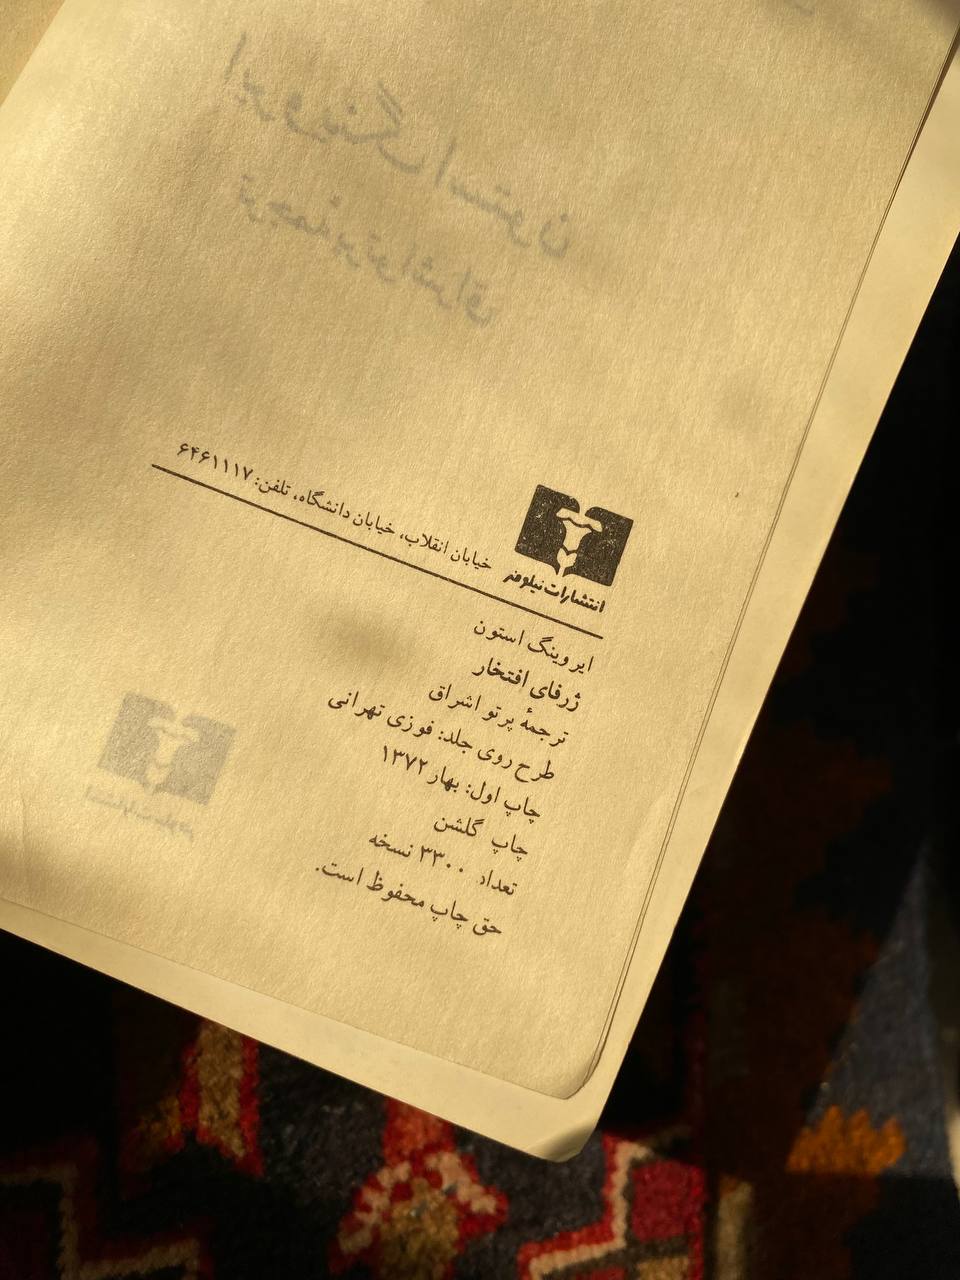 ایروینگ استون
ترجمهٔ پرتو اشراق
انتشارات نیلوفر
خیابان انقلاب، خیابان دانشگاه، تلفن: ۶۴۶۱۱۱۷
ایروینگ استون
ژرفای افتخار
ترجمهٔ پرتو اشراق
طرح روی جلد: فوزی تهرانی
چاپ اول: بهار ۱۳۷۲
چاپ گلشن
تعداد ۳۳۰۰ نسخه
حق چاپ محفوظ است.
انتشارات نیلوفر